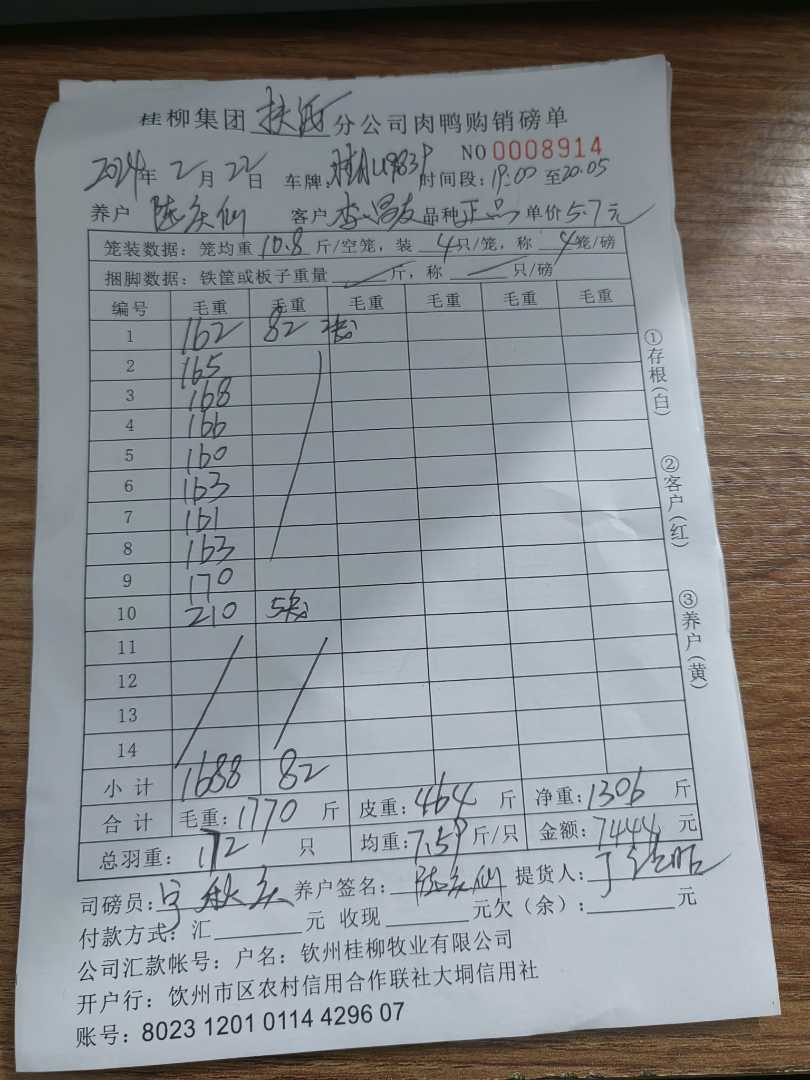 桂柳集团 扶西 分公司肉鸭购销磅单
NO 0008914
2024年 2月 22日 车牌: 时间段: 19:00 至20:05
养户 陆庆仙 客户 李昌友 品种 正品 单价 5.7元
笼装数据: 笼均重 10.8 斤/空笼, 装 4 只/笼, 称 4 笼/磅
捆脚数据: 铁筐或板子重量 斤, 称 只/磅
编号 毛重 毛重 毛重 毛重 毛重 毛重
1 162 82
2 165
3 168
4 166
5 160
6 163
7 161
8 163
9 170
10 210
11
12
13
14
小计 1688 82
合计 毛重: 1770 斤 皮重: 464 斤 净重: 1306 斤
总羽重: 172 只 均重: 7.59 斤/只 金额: 7444 元
司磅员: 养户签名: 陆庆仙 提货人:
付款方式: 汇 元 收现 元欠(余): 元
公司汇款帐号: 户名: 钦州桂柳牧业有限公司
开户行: 饮州市区农村信用合作联社大垌信用社
账号: 8023 1201 0114 4296 07
①存根(白)
②客户(红)
③养户(黄)